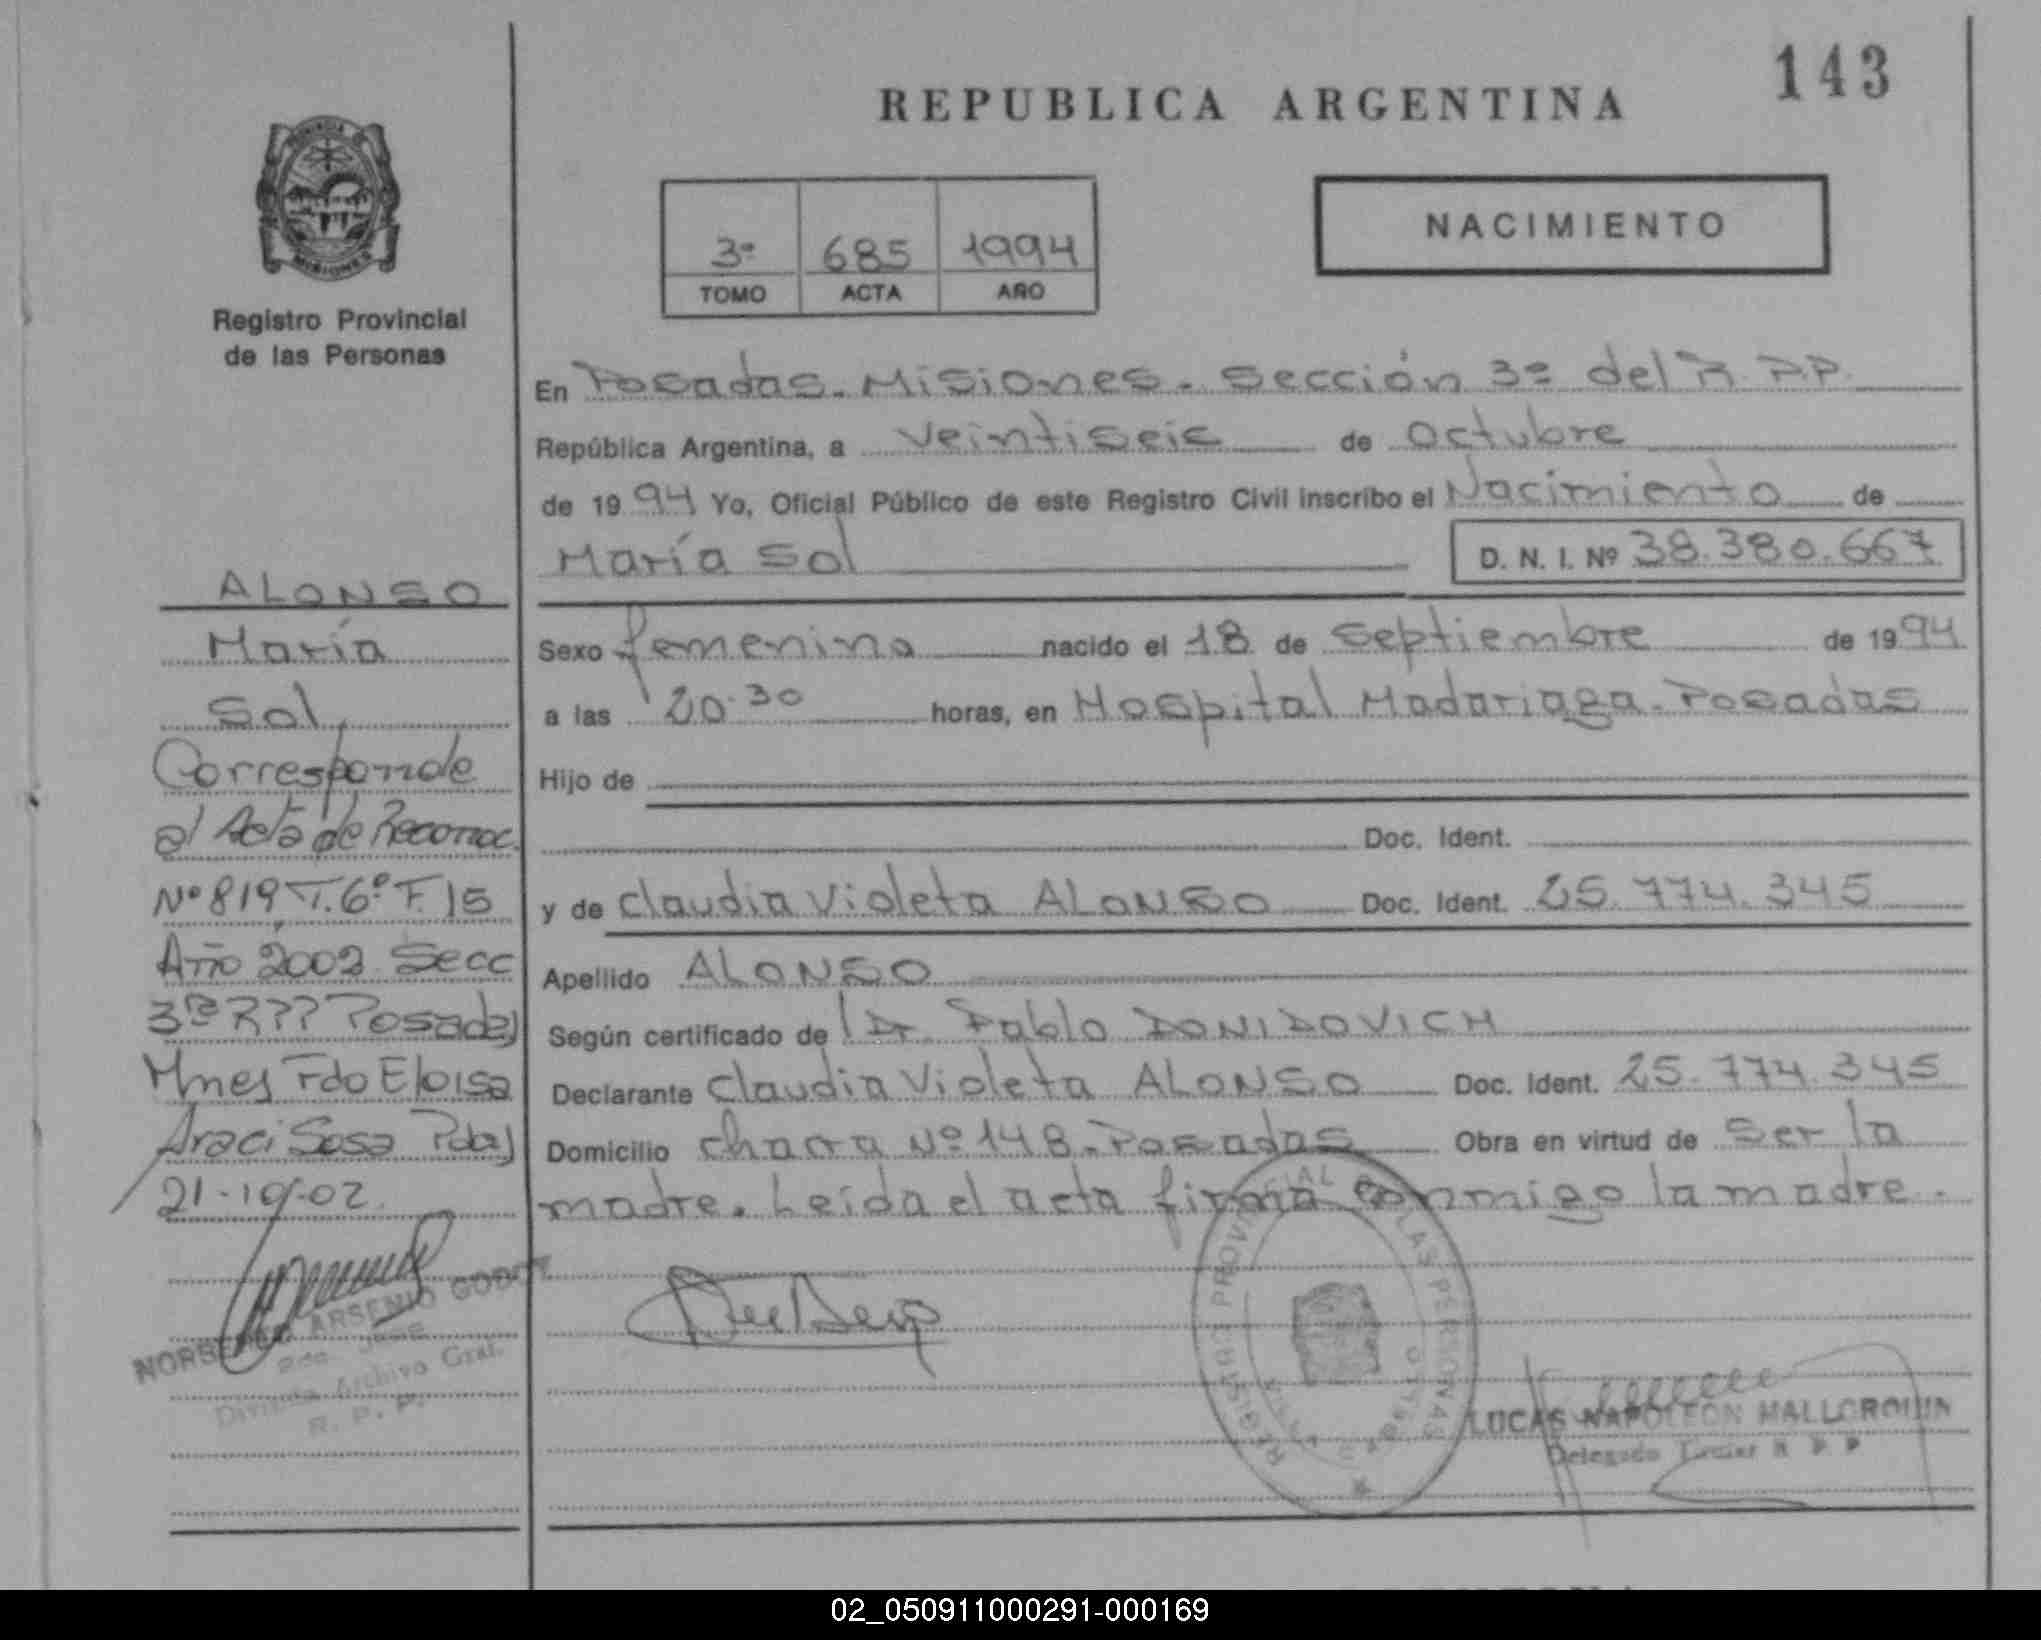 143
REPUBLICA ARGENTINA
3º 685 1994
TOMO ACTA AÑO
NACIMIENTO
PROVINCIA
MISIONES
Registro Provincial
de las Personas
ALONSO
María
Sol
Corresponde
a/ Acta de Reconoc.
Nº 819, T. 6º F. 15
Año 2002 Secc
3ª RPP Posadas
Mnes Fdo Eloisa
Araci Sosa Pdas
21-10-02.
ARSENIO
Archivo Gral.
R. P. P.
En Posadas. Misiones. Sección 3ª del R.P.P.
República Argentina, a veintiseis de octubre
de 1994 Yo, Oficial Público de este Registro Civil inscribo el Nacimiento de
María Sol D. N. I. Nº 38.380.667
Sexo femenino nacido el 18 de septiembre de 1994
a las 20.30 horas, en Hospital Madariaga. Posadas
Hijo de
Doc. Ident.
y de Claudia Violeta ALONSO Doc. Ident. 25.774.345
Apellido ALONSO
Según certificado de Dr. Pablo DONIDOVICH
Declarante Claudia Violeta ALONSO Doc. Ident. 25.774.345
Domicilio chacra Nº 148. Posadas Obra en virtud de ser la
madre. Leída el acta firma conmigo la madre.
REGISTRO PROVINCIAL DE LAS PERSONAS
LUCAS NAPOLEON MALLORQUIN
Delegado Titular R P P
02_050911000291-000169